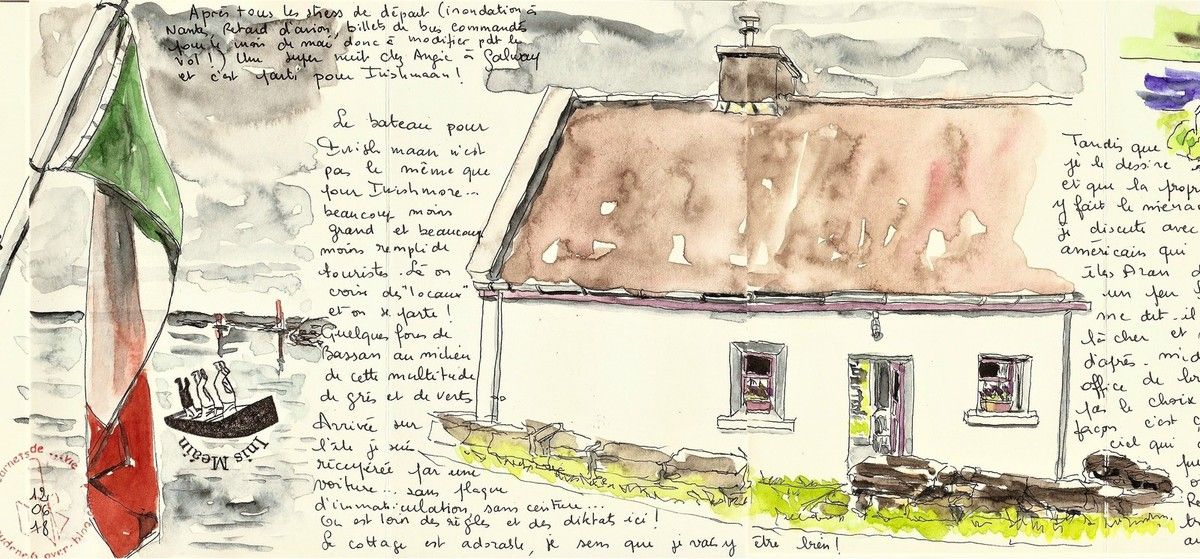 Après tous les stress de départ (inondation à
Nantes, Retard d'avion, billets de bus commandés
pour le mois de mai donc à modifier pdt le
vol !) Une super nuit chez Angie à Galway
et c'est parti pour Inishmaan !
Le bateau pour
Inishmaan n'est
pas le même que
pour Inishmore...
beaucoup moins
grand et beaucoup
moins rempli de
touristes. Là on
croise des "locaux"
et on se parle !
Quelques fous de
Bassan au milieu
de cette multitude
de gris et de verts
Arrivée sur
l'île je suis
récupérée par une
voiture... sans plaque
d'immatriculation, sans ceinture...
On est loin des règles et des diktats ici !
Le cottage est adorable, je sens que je vais y être bien !
Inis Meáin
carnets de ... vie
12
06
18
over-blog
Tandis que
je le dessine
et que la propr
y fait le ména
je discute avec
américain qui
îles Aran d
un peu
me dit.. il
lâcher et
d'après.. mid
office de
pas le choix
façon c'est
ciel qui